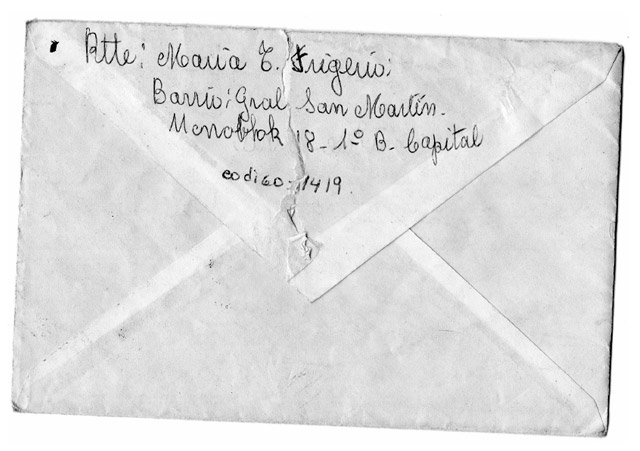 Rtte: Maria T. Frigerio:
Barrio: Gral San Martín.
Monoblok 18-1º B- Capital
codigo-1419.